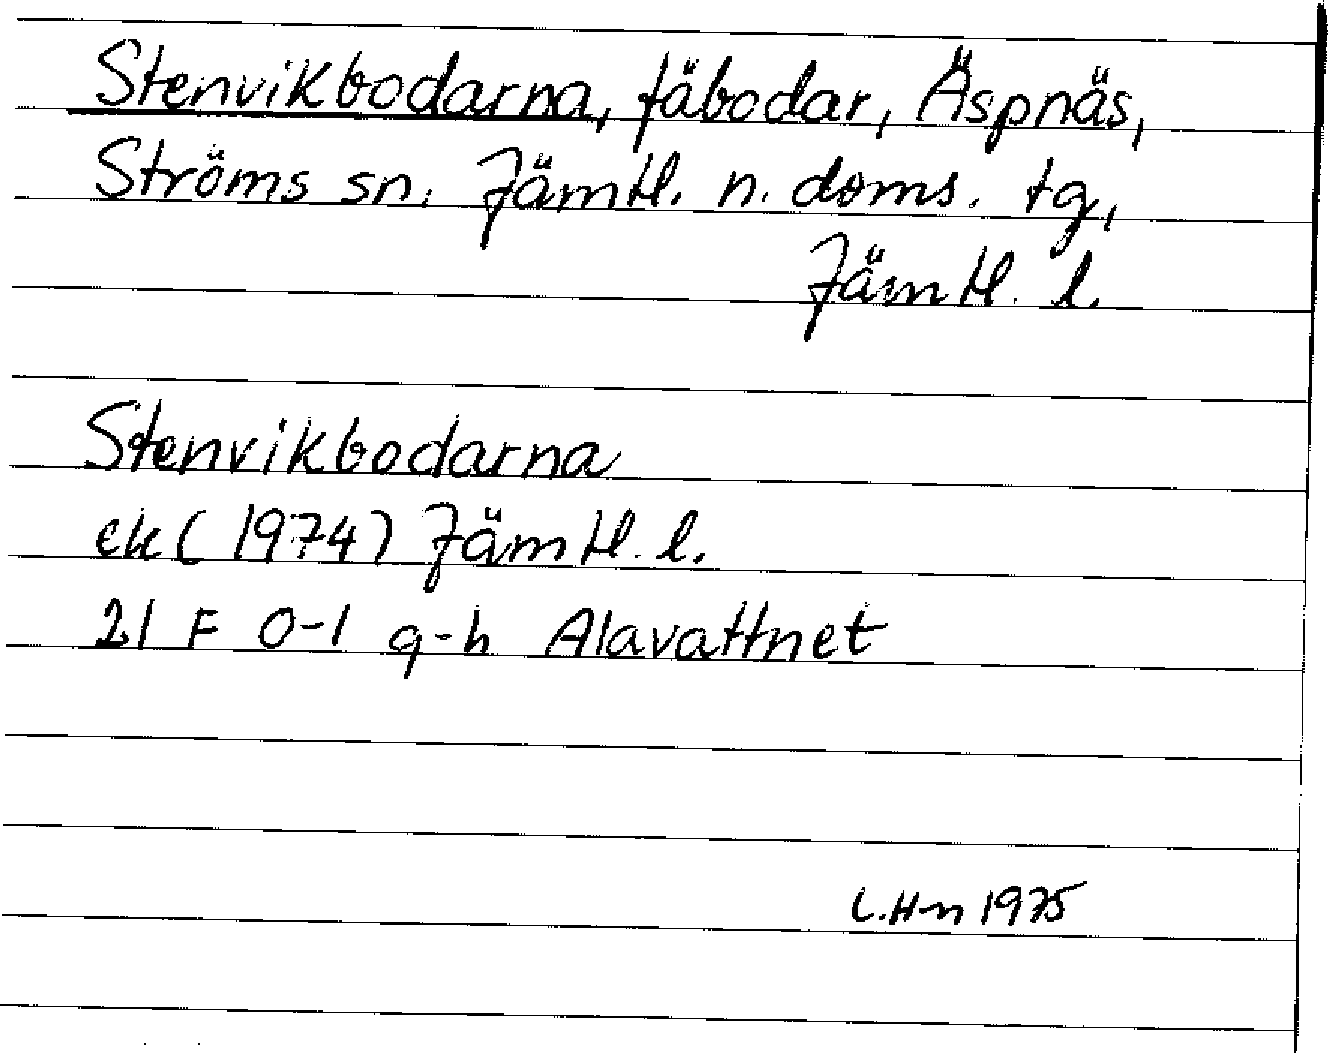 Stenvikbodarna, fäbodar, Äspnäs,
Ströms sn, Jämtl. n. doms. tg,
Jämtl. l.
Stenvikbodarna
ek (1974) Jämtl. l.
21 F 0-1 g-h Alavattnet
L.H-n 1975